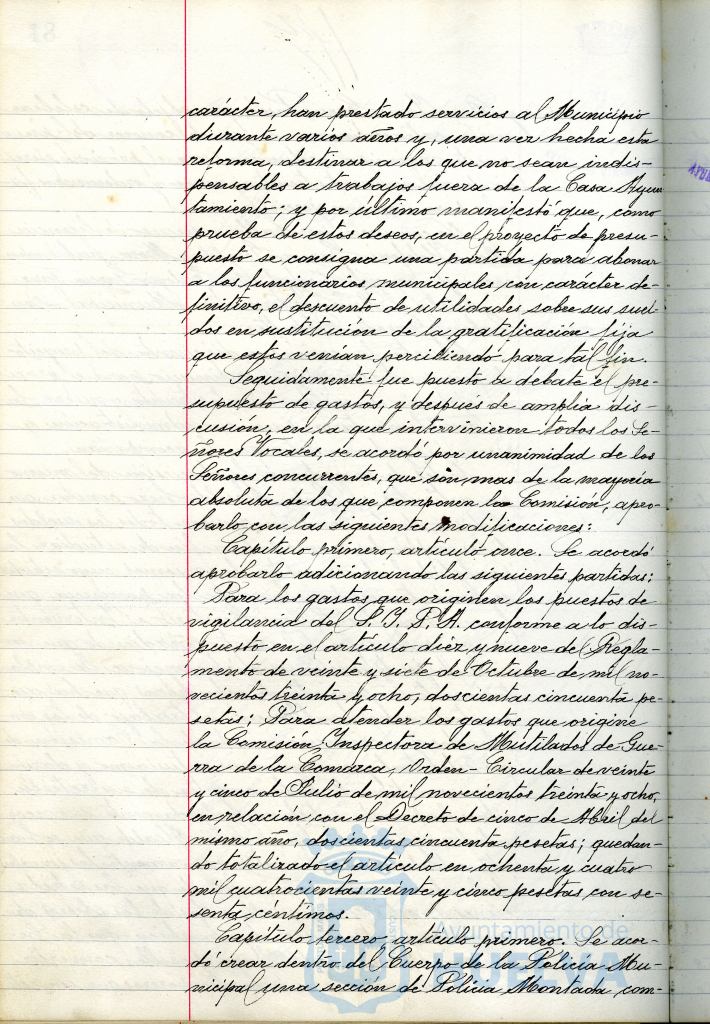 carácter, han prestado servicios al Municipio
durante varios años y, una vez hecha esta
reforma, destinar a los que no sean indis-
pensables a trabajos fuera de la Casa Ayun
tamiento; y por último manifestó que, como
prueba de estos deseos, en el proyecto de presu-
puesto se consigna una partida para abonar
a los funcionarios municipales con carácter de-
finitivo, el descuento de utilidades sobre sus suel
dos en sustitución de la gratificación fija
que estos venían percibiendo para tal fin.
Seguidamente fue puesto a debate el pre-
supuesto de gastos, y después de amplia dis-
cusión, en la que intervinieron todos los Se-
ñores Vocales, se acordó por unanimidad de los
Señores concurrentes, que son mas de la mayoría
absoluta de los que componen la Comisión, apro-
barlo con las siguientes modificaciones:
Capítulo primero, artículo once. Se acordó
aprobarlo adicionando las siguientes partidas:
Para los gastos que originen los puestos de
vigilancia del S. I. P. M. conforme a lo dis-
puesto en el artículo diez y nueve del Regla-
mento de veinte y siete de Octubre de mil no-
vecientos treinta y ocho, doscientas cincuenta pe-
setas; Para atender los gastos que origine
la Comisión Inspectora de Mutilados de Gue-
rra de la Comarca, Orden-Circular de veinte
y cinco de Julio de mil novecientos treinta y ocho,
en relación con el Decreto de cinco de Abril del
mismo año, doscientas cincuenta pesetas; quedan-
do totalizado el artículo en ochenta y cuatro
mil cuatrocientas veinte y cinco pesetas con se-
senta céntimos.
Capítulo tercero, artículo primero. Se acor-
dó crear dentro del Cuerpo de la Policía Mu-
nicipal una sección de Policía Montada com-
Ayuntamiento de
HUELVA